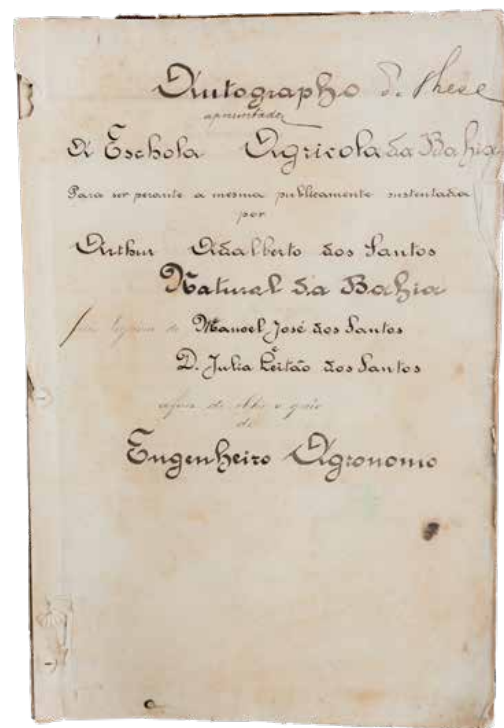 Autographo de These
apresentada
A Eschola Agricola da Bahia
Para ser perante a mesma publicamente sustentada
por
Arthur Adalberto dos Santos
Natural da Bahia
de Manoel José dos Santos
e
D. Julia Leitão dos Santos
afim de obter o grau
de
Engenheiro Agronomo